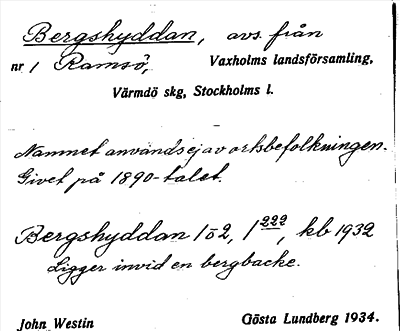 Bergshyddan, avs. från
nr 1 Ramsö, Vaxholms landsförsamling,
Värmdö skg, Stockholms l.
Namnet användsej av ortsbefolkningen.
Givet på 1890-talet.
Bergshyddan 1ö2, 1²²², kb 1932
Ligger invid en bergbacke.
John Westin Gösta Lundberg 1934.